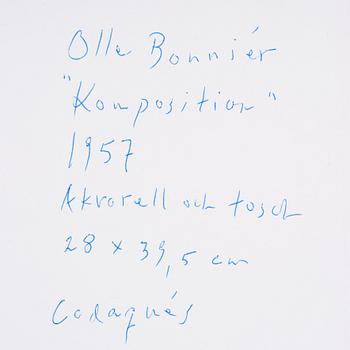 Olle Bonniér
"Komposition"
1957
Akvarell och tusch
28 x 39,5 cm
Cadaqués